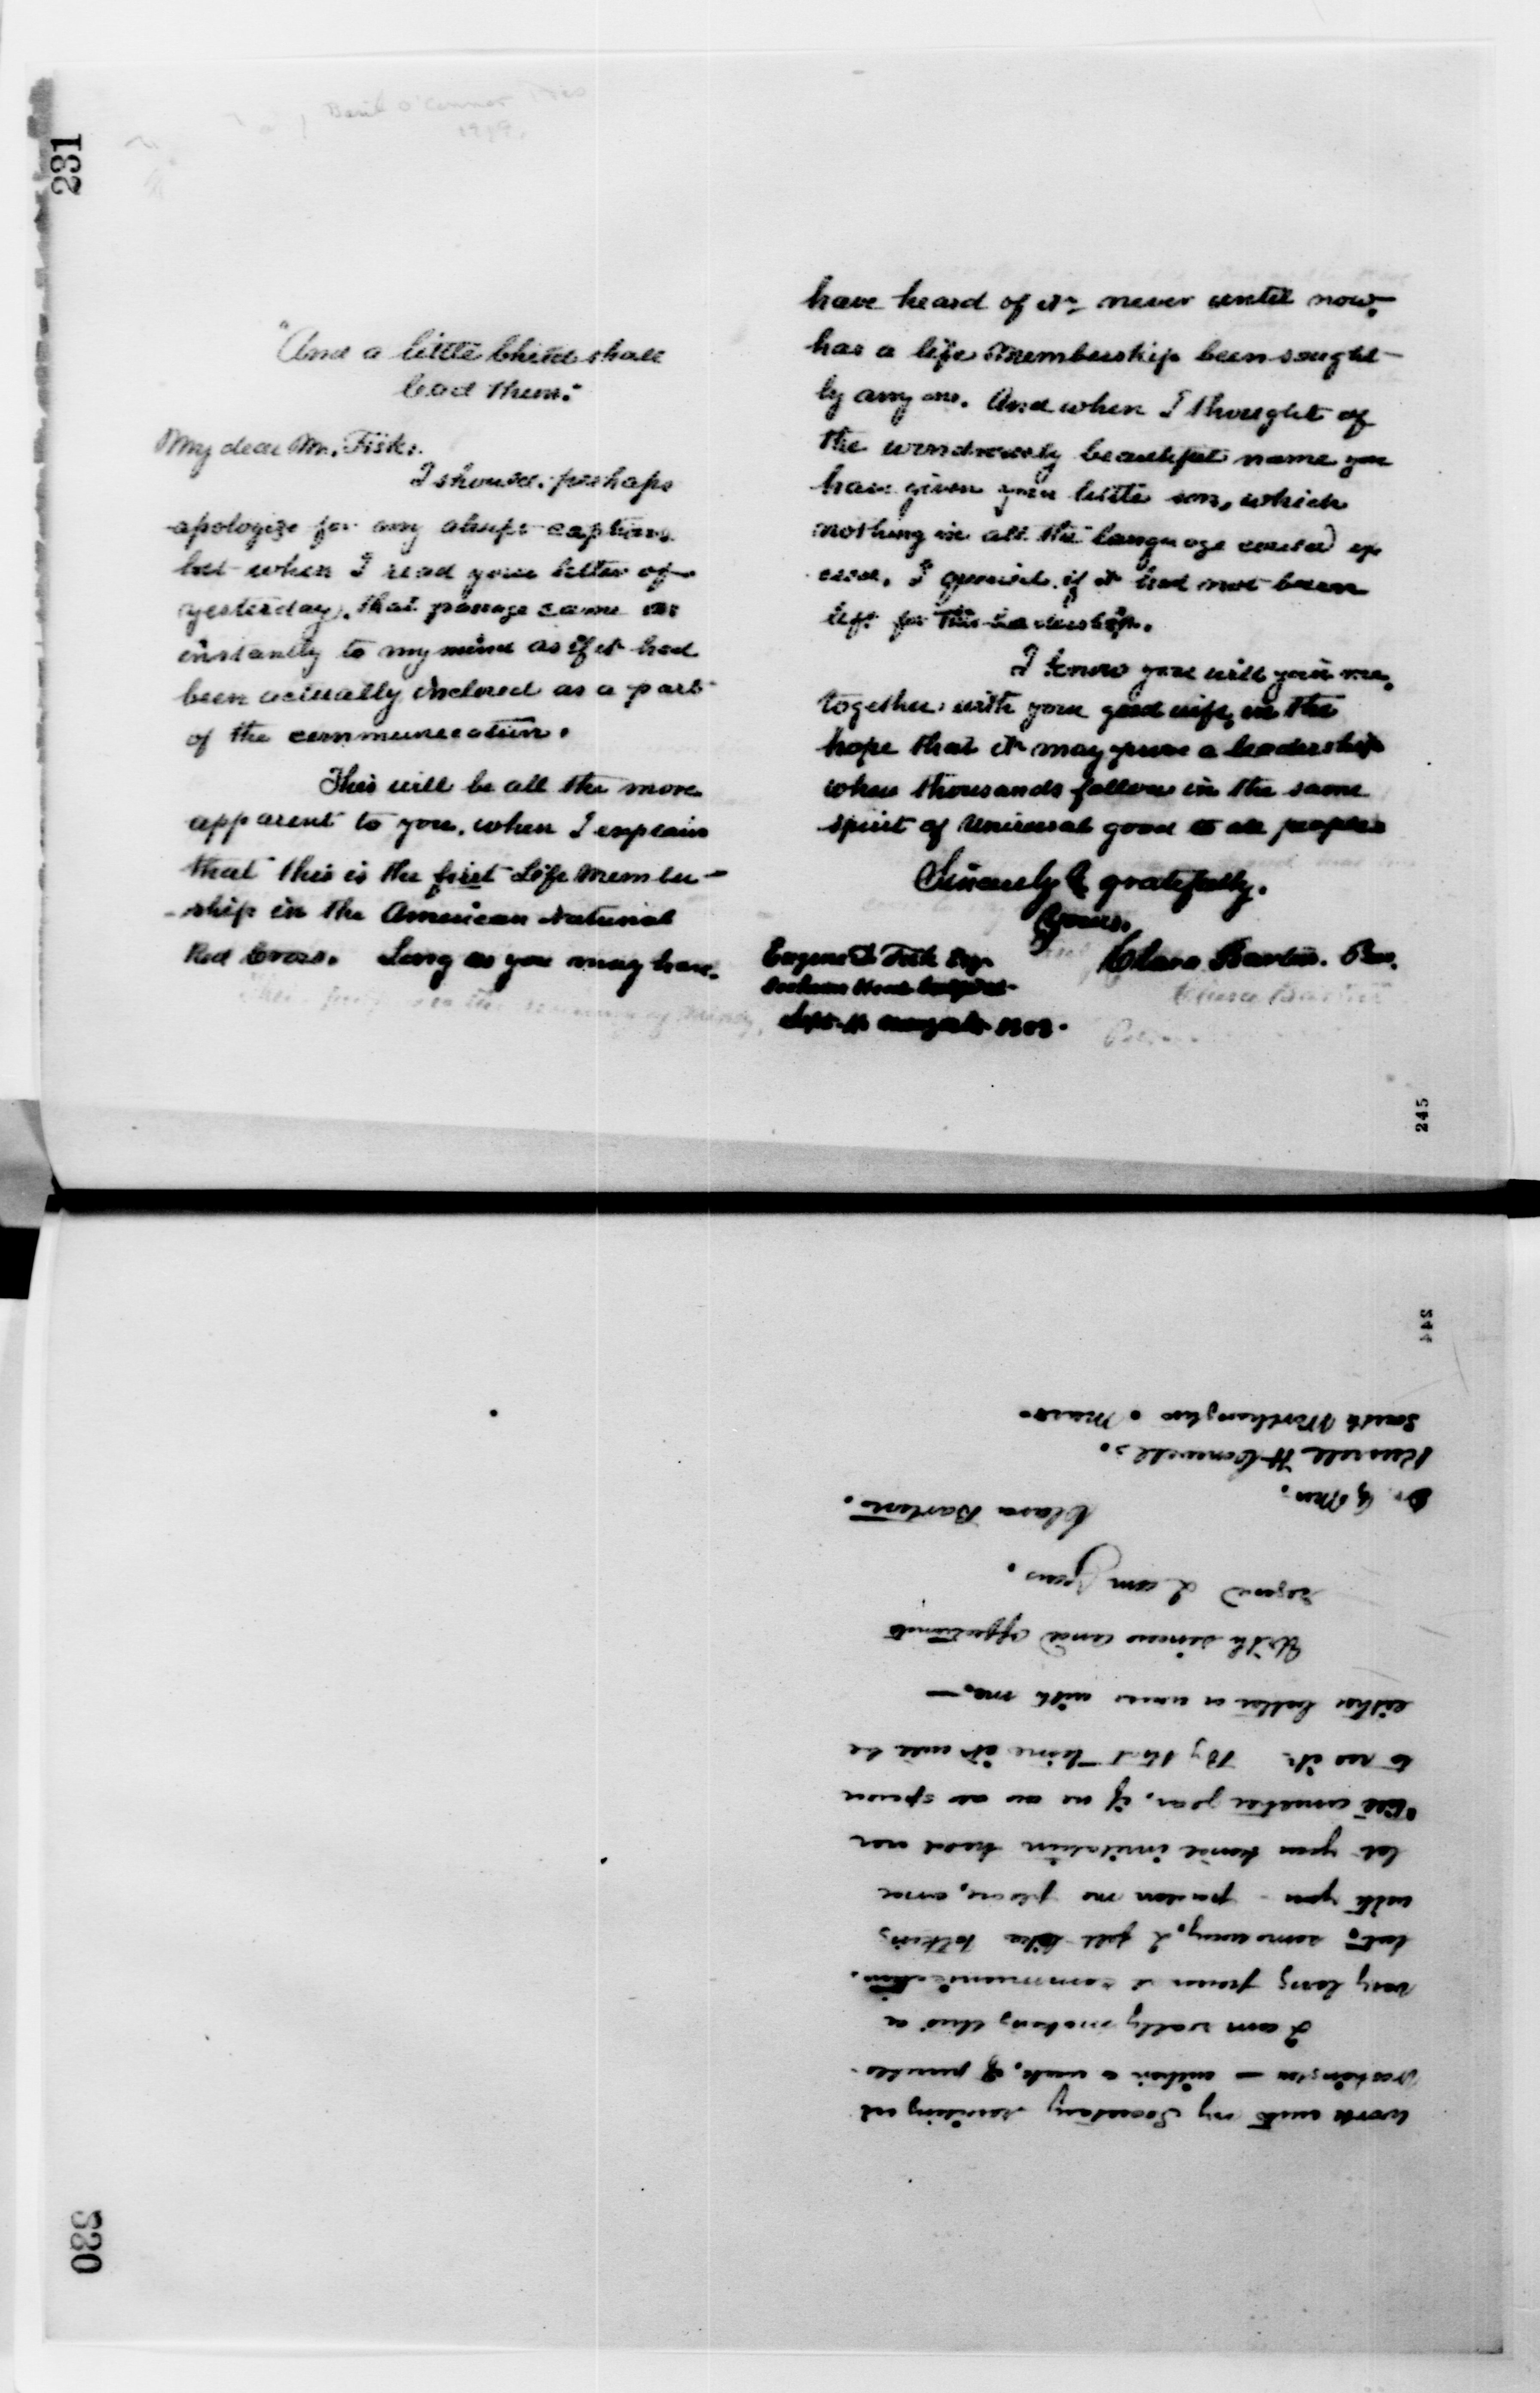 231
Basil O'Connor
"And a little Child shall
lead them."
My dear Mr. Fisk:
I should perhaps
apologize for my abrupt caption
but when I read your letter of
yesterday, that passage came as
instantly to my mind as if it had
been actually inclosed as a part
of the communication.
This will be all the more
apparent to you, when I explain
that this is the first Life Member-
ship in the American National
Red Cross. Long as you may have
have heard of it - never until now
has a life membership been sought
by any one. And when I thought of
the wondrously beautiful name you
have given your little son, which
nothing in all the language could ex
I if it had not been
left for this leadership.
I know you will join me,
together with your good wife, in the
hope that it may prove a leadership
when thousands follow in the same
spirit of Universal good to all peoples
Sincerely & gratefully,
Yours,
Clara Barton. Pres.
Eugene Fisk Esq
Clara Barton
245
work until my Secretary
Washington — within a week, if possible.
I am really making this a
very long personal communication,
but, some way, I felt like talking
with you - pardon me please, and
let your kind invitation hold over
till another year, if we are spared
to see it. By that time it will be
either better or worse with me. —
With sincere and affectionate
regard I am yours,
Clara Barton.
Dr. & Mrs.
Russell H Conwell,
South Worthington. Mass.
330